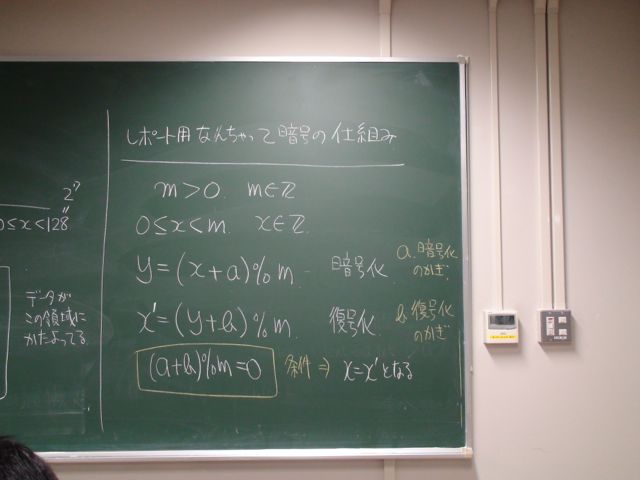 2"
0≤x<128"
データが
この領域に
かたよってる
レポート用なんちゃって暗号の仕組み
m>0. m∈ℤ
0≤x<m. x∈ℤ.
y=(x+a)%m. 暗号化 a.暗号化のかぎ.
x'=(y+b)%m. 復号化 b.復号化のかぎ
(a+b)%m=0 条件⇒ x=x'となる